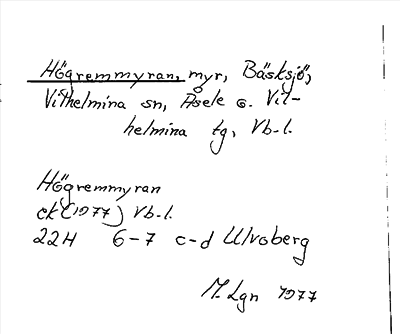 Högremmyran, myr, Bäsksjö,
Vilhelmina sn, Åsele o. Vil-
helmina tg, Vb-l.
Högremmyran
ek (1977) Vb-l.
22H 6-7 c-d Ulvoberg
M. Lgn 1977